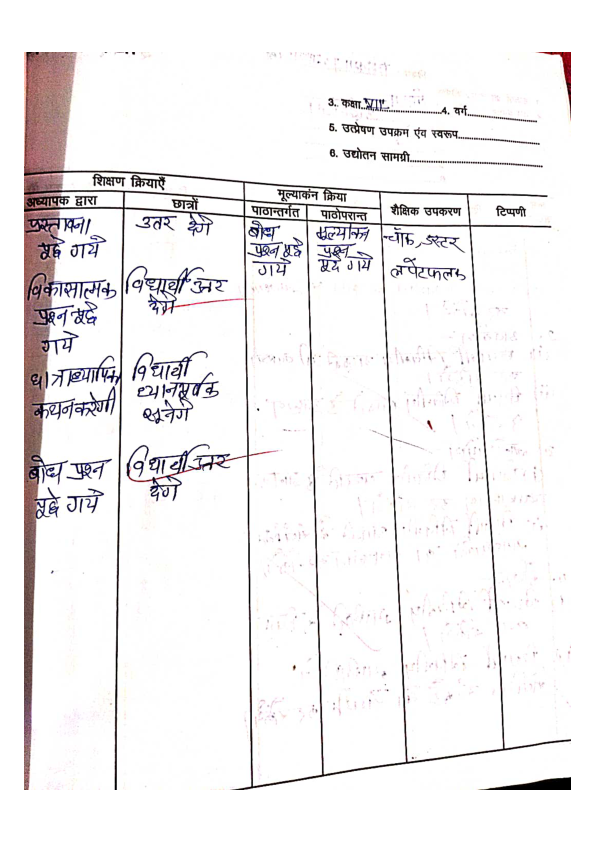 3. कक्षा..VII..........................4. वर्ग..........................
5. उत्प्रेषण उपक्रम एंव स्वरूप..............................
6. उद्योतन सामग्री..............................................
शिक्षण क्रियाएँ
मूल्याकंन क्रिया
अध्यापक द्वारा
छात्रों
पाठान्तर्गत
पाठोपरान्त
शैक्षिक उपकरण
टिप्पणी
प्रस्तावना
पूछे गये
उतर देगे
बोध
प्रश्न पूछे
गये
मूल्यांकन
प्रश्न
पूछे गये
चॉक, डस्टर
लपेटफलक
विकासात्मक
प्रश्न पूछे
गये
विधार्थी उत्तर
देगे
छात्राध्यापिका
कथन करेगी
विधार्थी
ध्यानपूर्वक
सूनेगे
बोध प्रश्न
पूछे गये
विधार्थी उत्तर
देगे